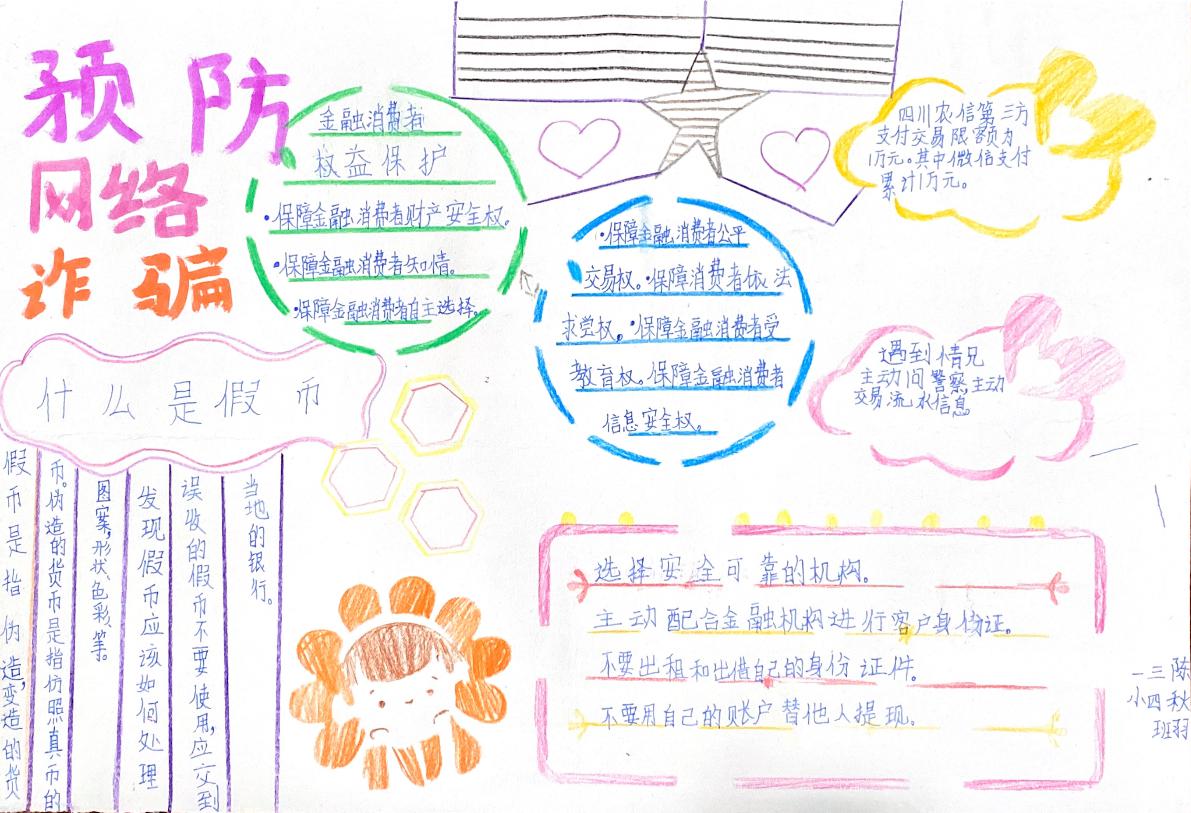 预防
网络
诈骗
金融消费者
权益保护
·保障金融消费者财产安全权。
·保障金融消费者知情。
·保障金融消费者自主选择。
·保障金融消费者公平
交易权。·保障消费者依法
求偿权。·保障金融消费者受
教育权。保障金融消费者
信息安全权。
四川农信第三方
支付交易限额为
1万元。其中微信支付
累计1万元。
遇到情况
主动问警察,主动
交易流水信息
什么是假币
假币是指伪造,变造的货
币。伪造的货币是指仿照真币的
图案,形状、色彩、等。
发现假币应该如何处理
误收的假币不要使用,应交到
当地的银行。
选择安全可靠的机构。
主动配合金融机构进行客户身份证。
不要出租和出借自己的身份证件。
不要用自己的账户替他人提现。
一小
三四班
陈秋羽